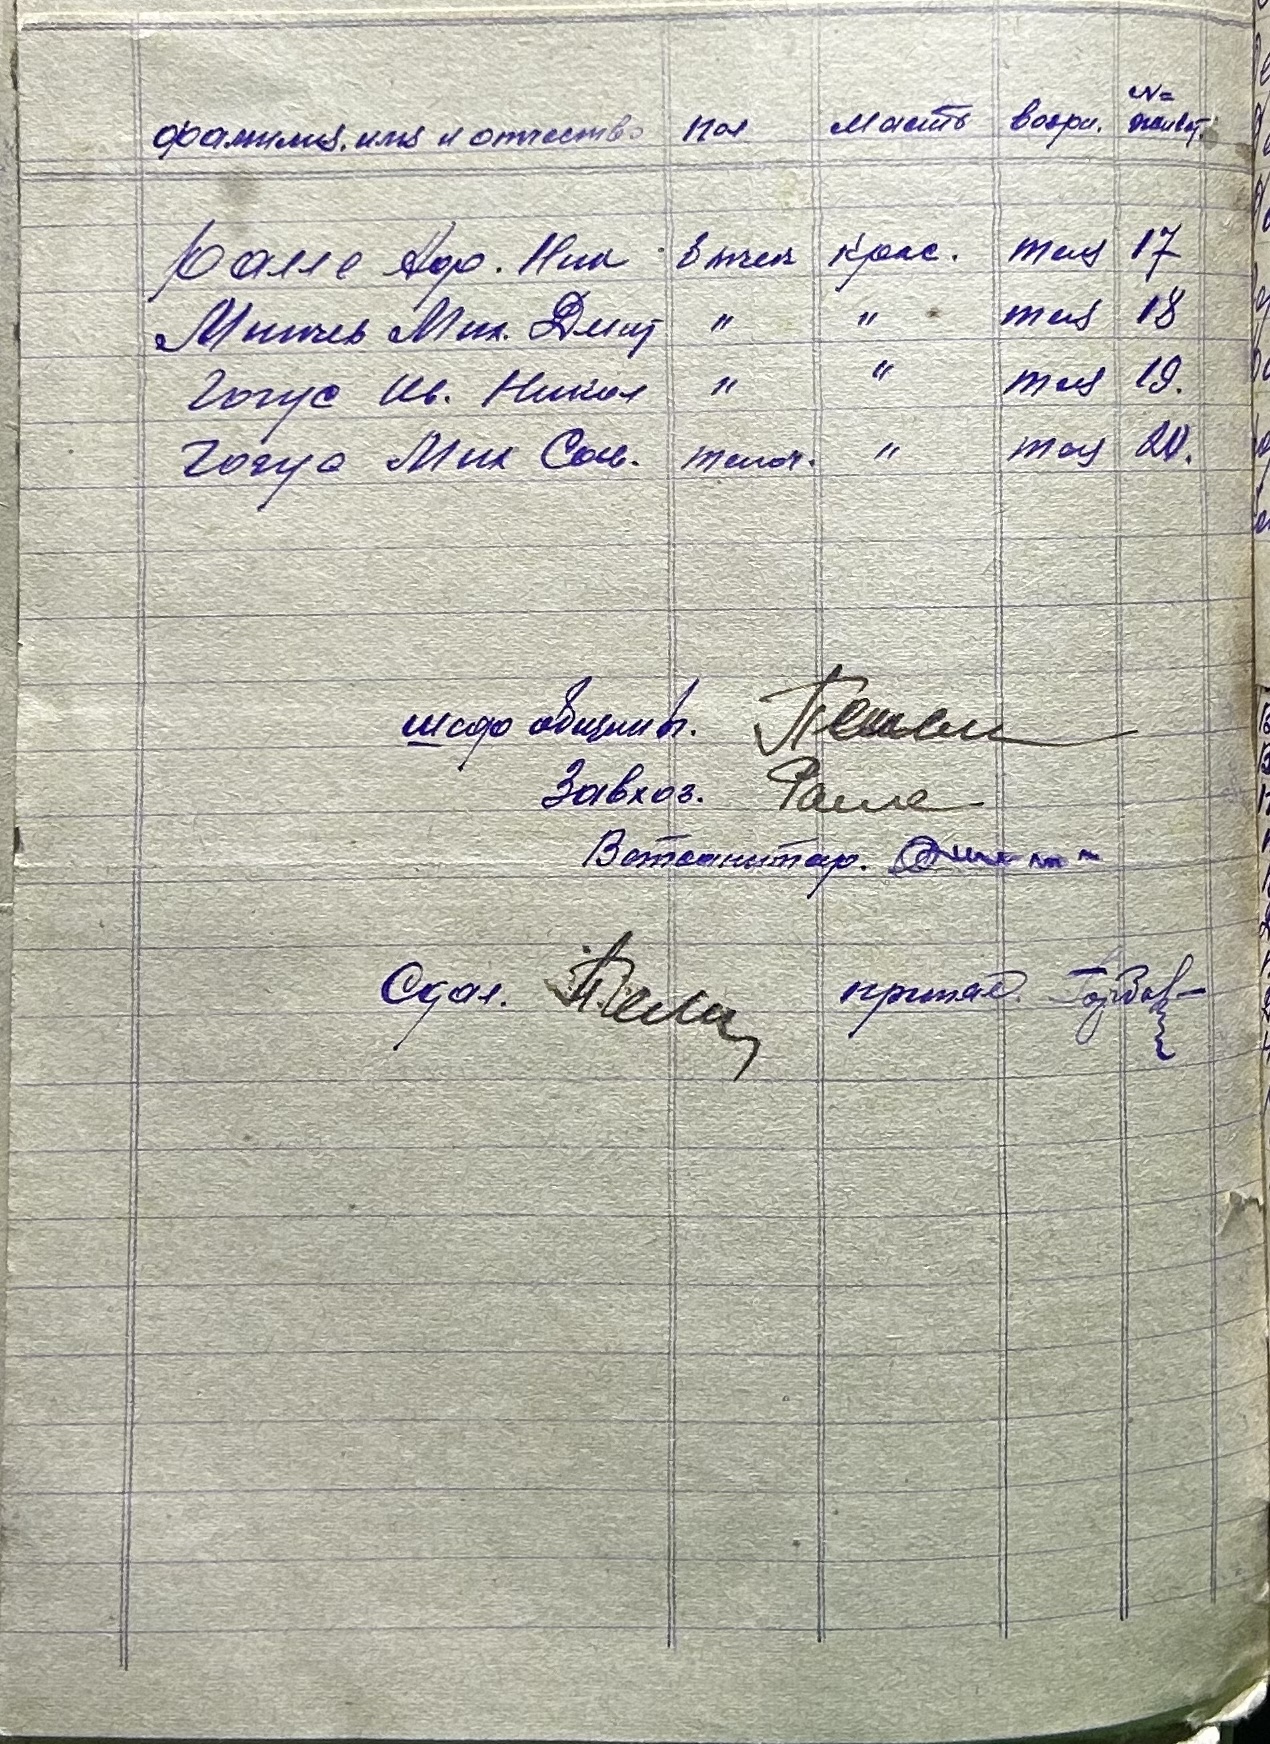 фамилия, имя и отчество пол масть возра. № живот.
Фалле Афо. Ник бычек крас. тел 17
Минчев Мих. Дмит " " тел 18
Гогус Ив. Никол " " тел 19.
Гогуа Мих Сав. телоч. " тел 20.
шеф общины.
Завхоз. Фалле
Ветсанитар.
Сдал. принял.